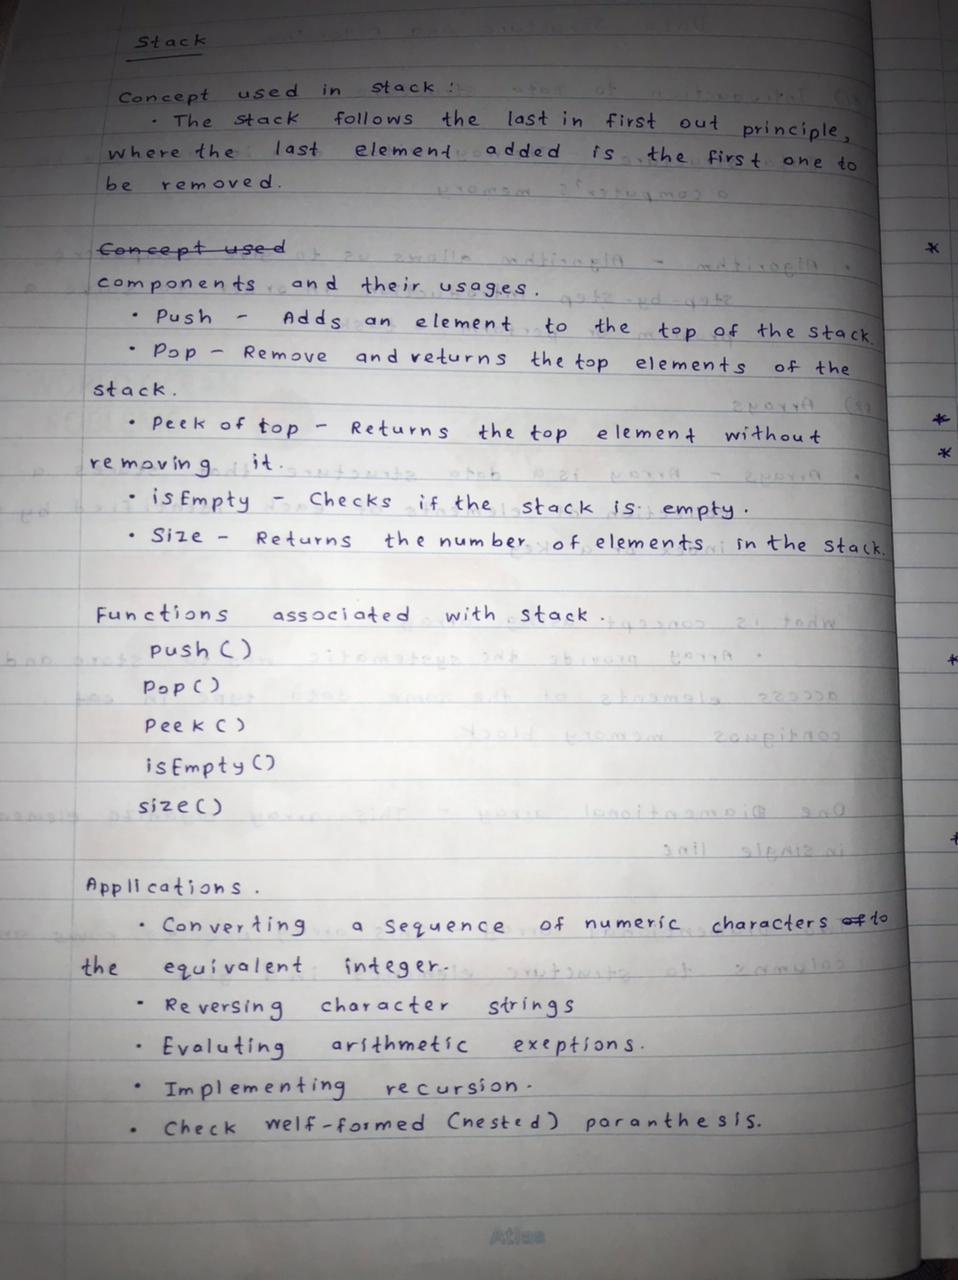 Stack
Concept used in stack :
• The stack follows the last in first out principle,
where the last element added is the first one to
be removed.
Concept used
components and their usages.
• Push - Adds an element to the top of the stack.
• Pop - Remove and returns the top elements of the
stack.
• Peek of top - Returns the top element without
removing it.
• isEmpty - Checks if the stack is empty.
• Size - Returns the number of elements in the stack.
Functions associated with stack.
push()
Pop()
Peek()
isEmpty()
size()
Applications.
• Converting a sequence of numeric characters of to
the equivalent integer.
• Reversing character strings
• Evaluting arithmetic exeptions.
• Implementing recursion.
• Check welf-formed (nested) paranthesis.
Atlas